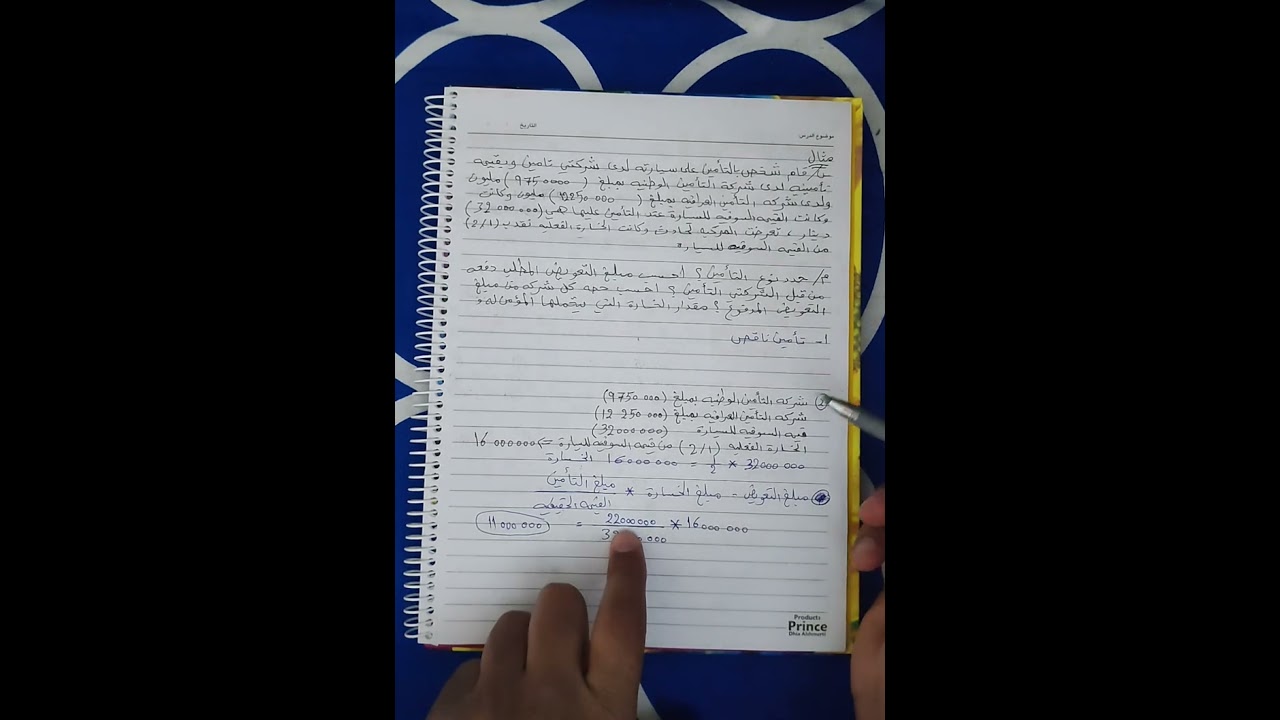 موضوع الدرس: التاريخ
مثال
س/ قام شخص بالتأمين على سيارته لدى شركتي تامين وبقيمه
تأمينيه لدى شركة التأمين الوطنيه بمبلغ (9750000) مليون
ولدى شركه التأمين العراقيه بمبلغ (12250000) مليون وكانت
وكانت القيمه السوقيه للسيارة عند التأمين عليها هي (32000000)
دينار، تعرضت المركبه لحادث وكانت الخسارة الفعليه تقدب (2/1)
من القيمه السوقيه للسيارة
م/ حدد نوع التأمين؟ احسب مبلغ التعويض المطلب دفعه
من قبل الشركتي التأمين؟ احسب حصه كل شركه من مبلغ
التعويض المدفوع؟ مقدار الخسارة التي يتحملها المؤمن له؟
1- تأمين ناقص
2) شركه التأمين الوطنيه بمبلغ (9750000)
شركه التأمين العراقيه بمبلغ (12250000)
قيمه السوقيه للسيارة (32000000)
الخسارة الفعليه (2/1) من قيمه السوقيه للسيارة <= 16000000
32000000 * 1/2 = 16000000 الخسارة
مبلغ التعويض = مبلغ الخسارة * مبلغ التأمين
القيمه الحقيقيه
16000000 * 22000000 = 11000000
000
Products
Prince
Dhia Alshmarti